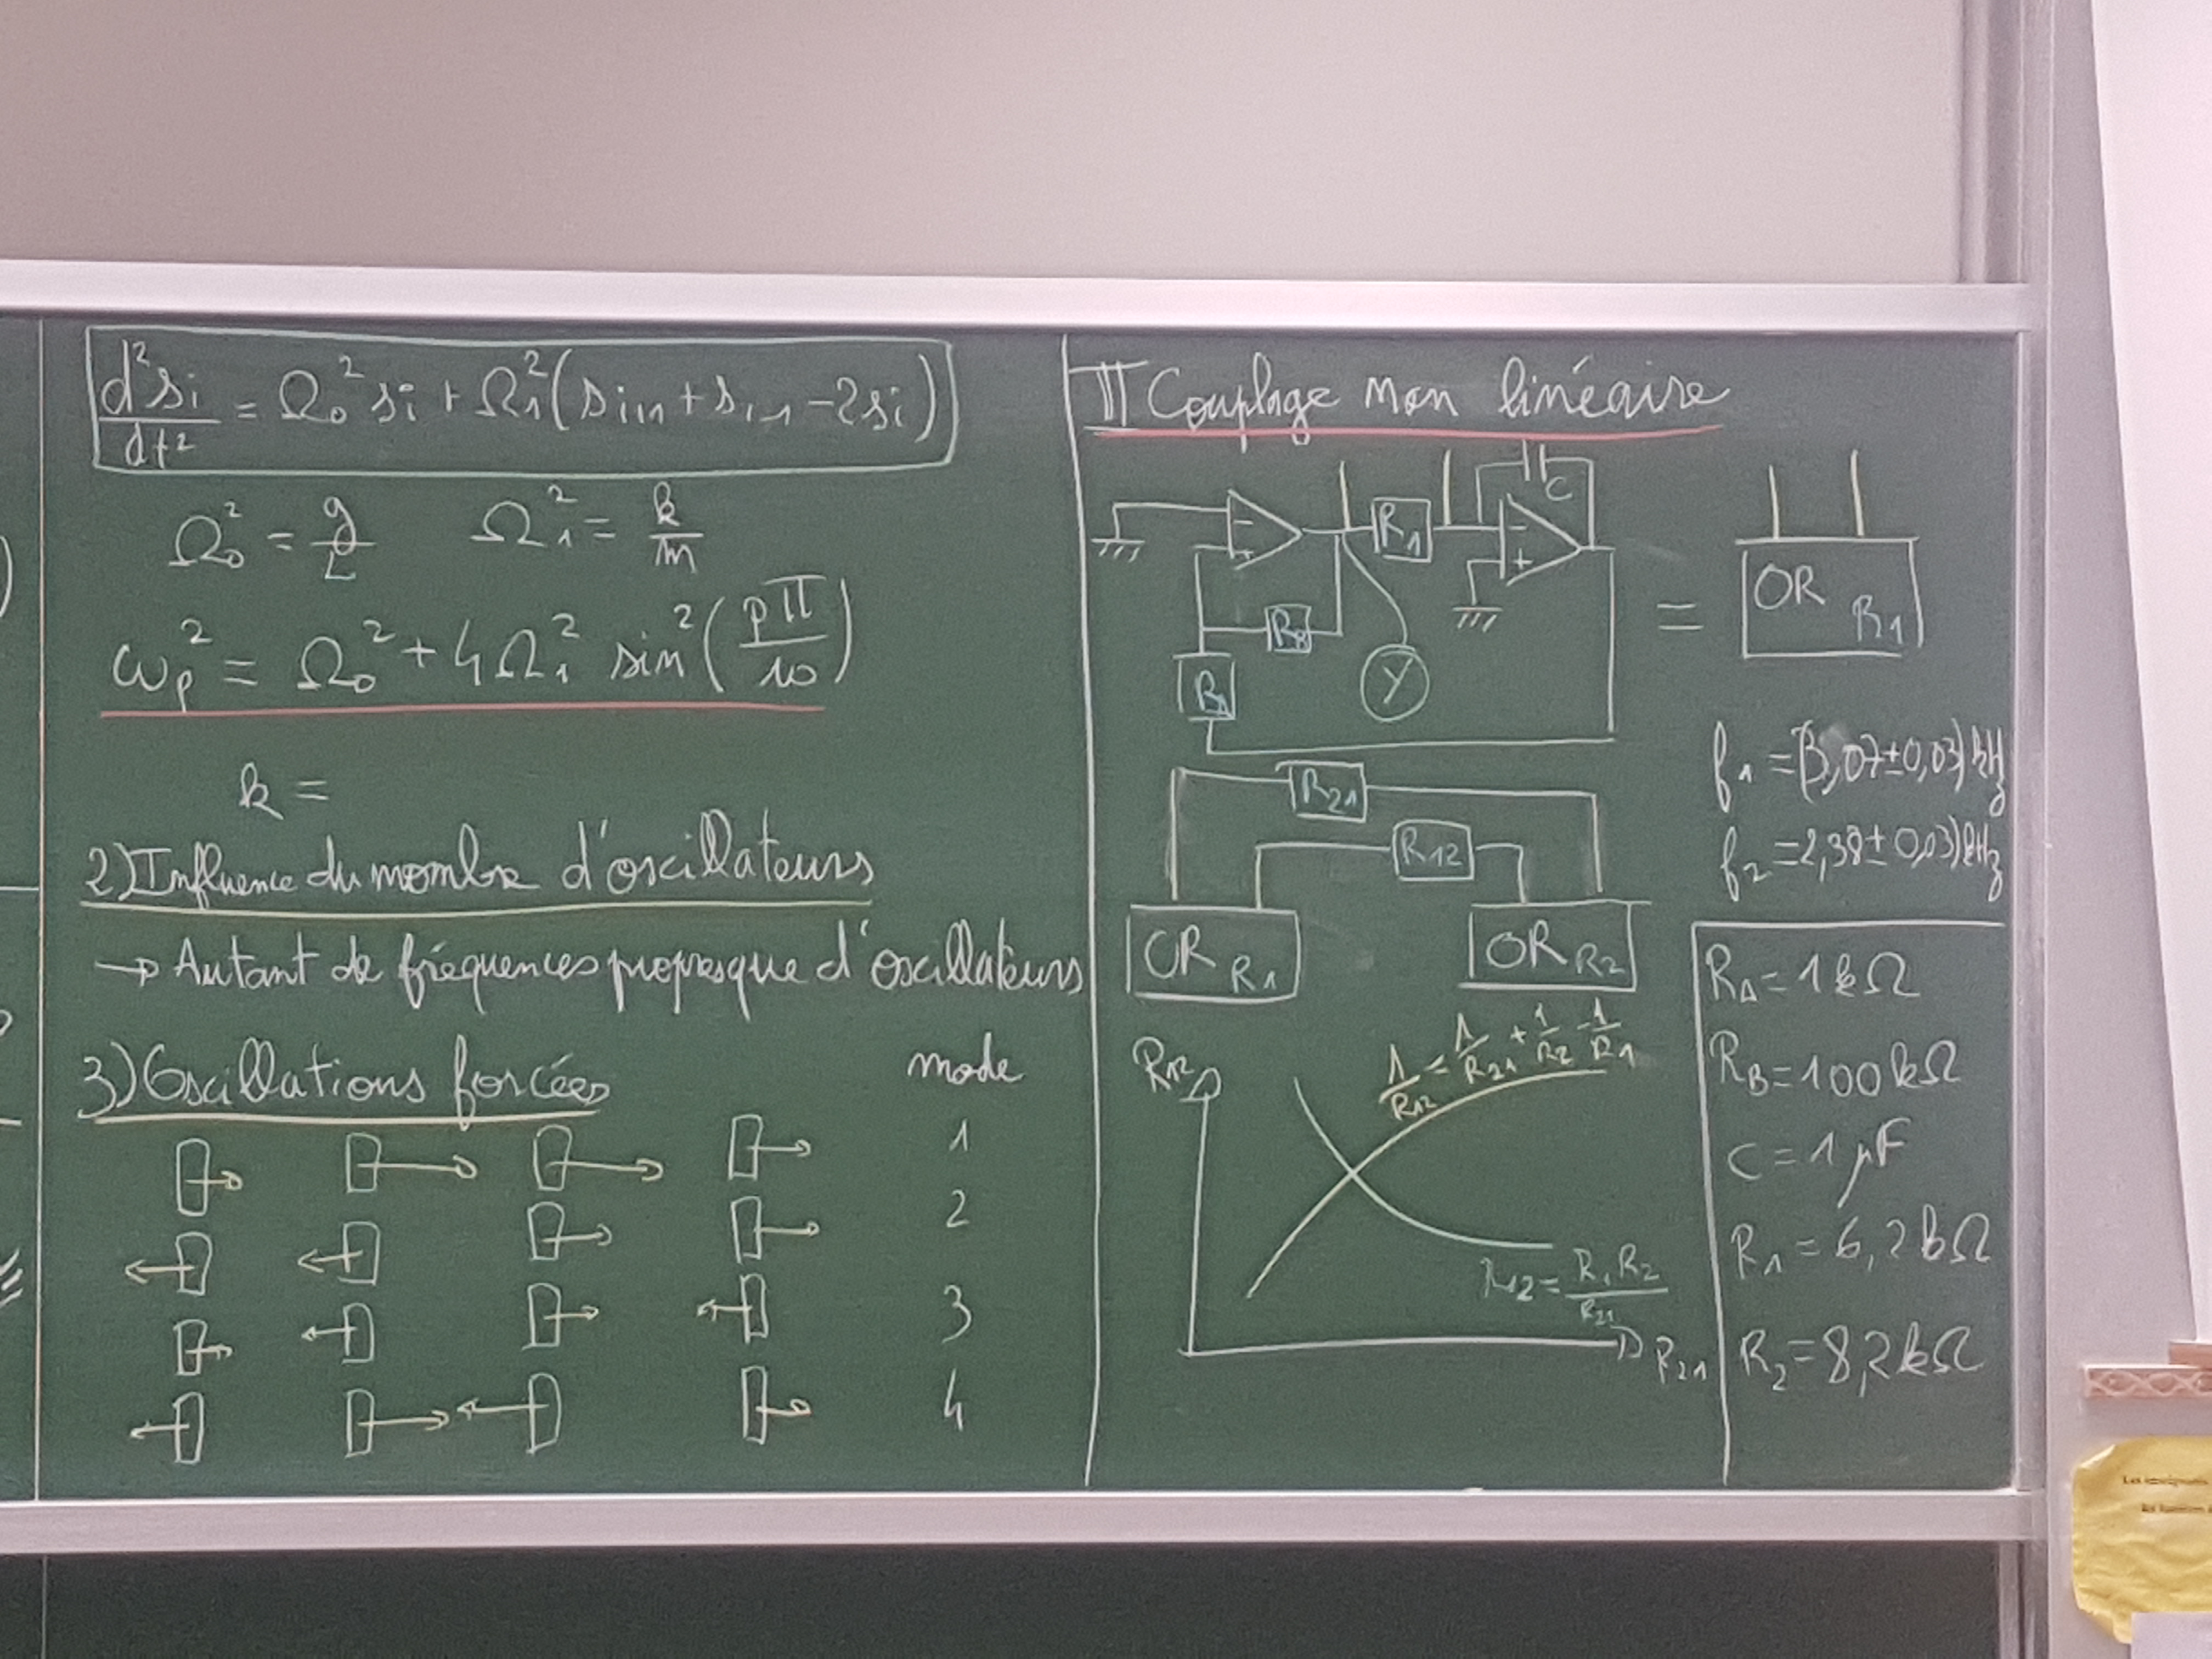 d²si/dt² = Ω₀² si + Ω₁² (si+1 + si-1 - 2si)
Ω₀² = g/L    Ω₁² = k/m
ωp² = Ω₀² + 4Ω₁² sin² (pπ/10)
k =
2) Influence du nombre d'oscillateurs
→ Autant de fréquences propres que d'oscillateurs
3) Oscillations forcées
mode
1
2
3
4
II Couplage non linéaire
- + R1 - + C
RB
RA
Y
= OR R1
f1 = (3,07 ± 0,03) kHz
f2 = 2,38 ± 0,03) kHz
R21
R12
OR R1
OR R2
R12
1/R12 = 1/R21 + 1/R2 - 1/R1
R12 = R1 R2/R21
R21
RA = 1 kΩ
RB = 100 kΩ
C = 1 µF
R1 = 6,2 kΩ
R2 = 8,2 kΩ